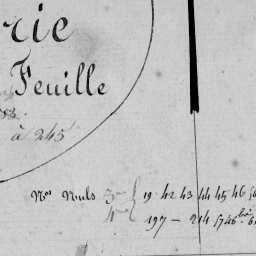 rie
Feuille
à 245
Nos Nuls 3me 19 42 43 44 45 46
4me 197 — 214